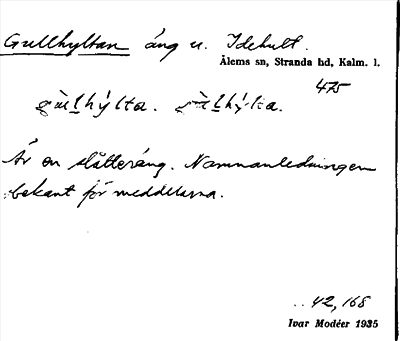 Gullhyltan äng u. Idehult.
Ålems sn, Stranda hd, Kalm. l.
475
Är en slåtteräng. Namnanledningen
bekant för meddelarna.
42,168
Ivar Modéer 1935